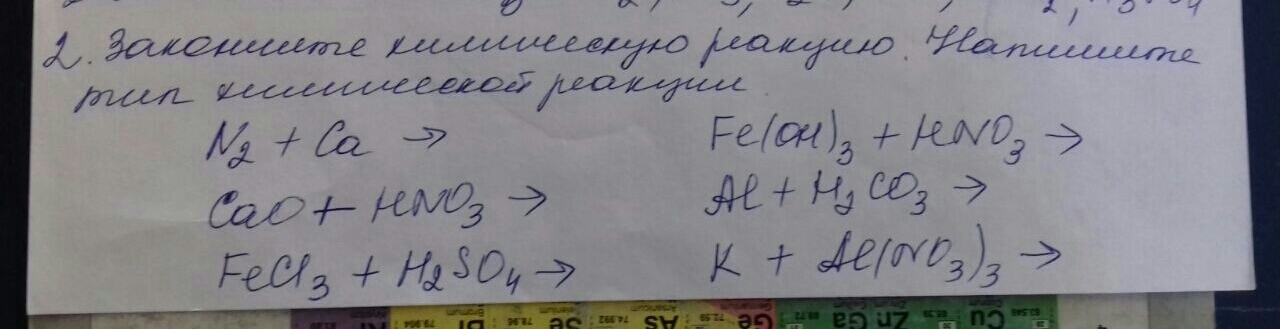 2. Закончите химическую реакцию. Напишите
тип химической реакции.
N2 + Ca →
Fe(OH)3 + HNO3 →
CaO + HNO3 →
Al + H2CO3 →
FeCl3 + H2SO4 →
K + Al(NO3)3 →